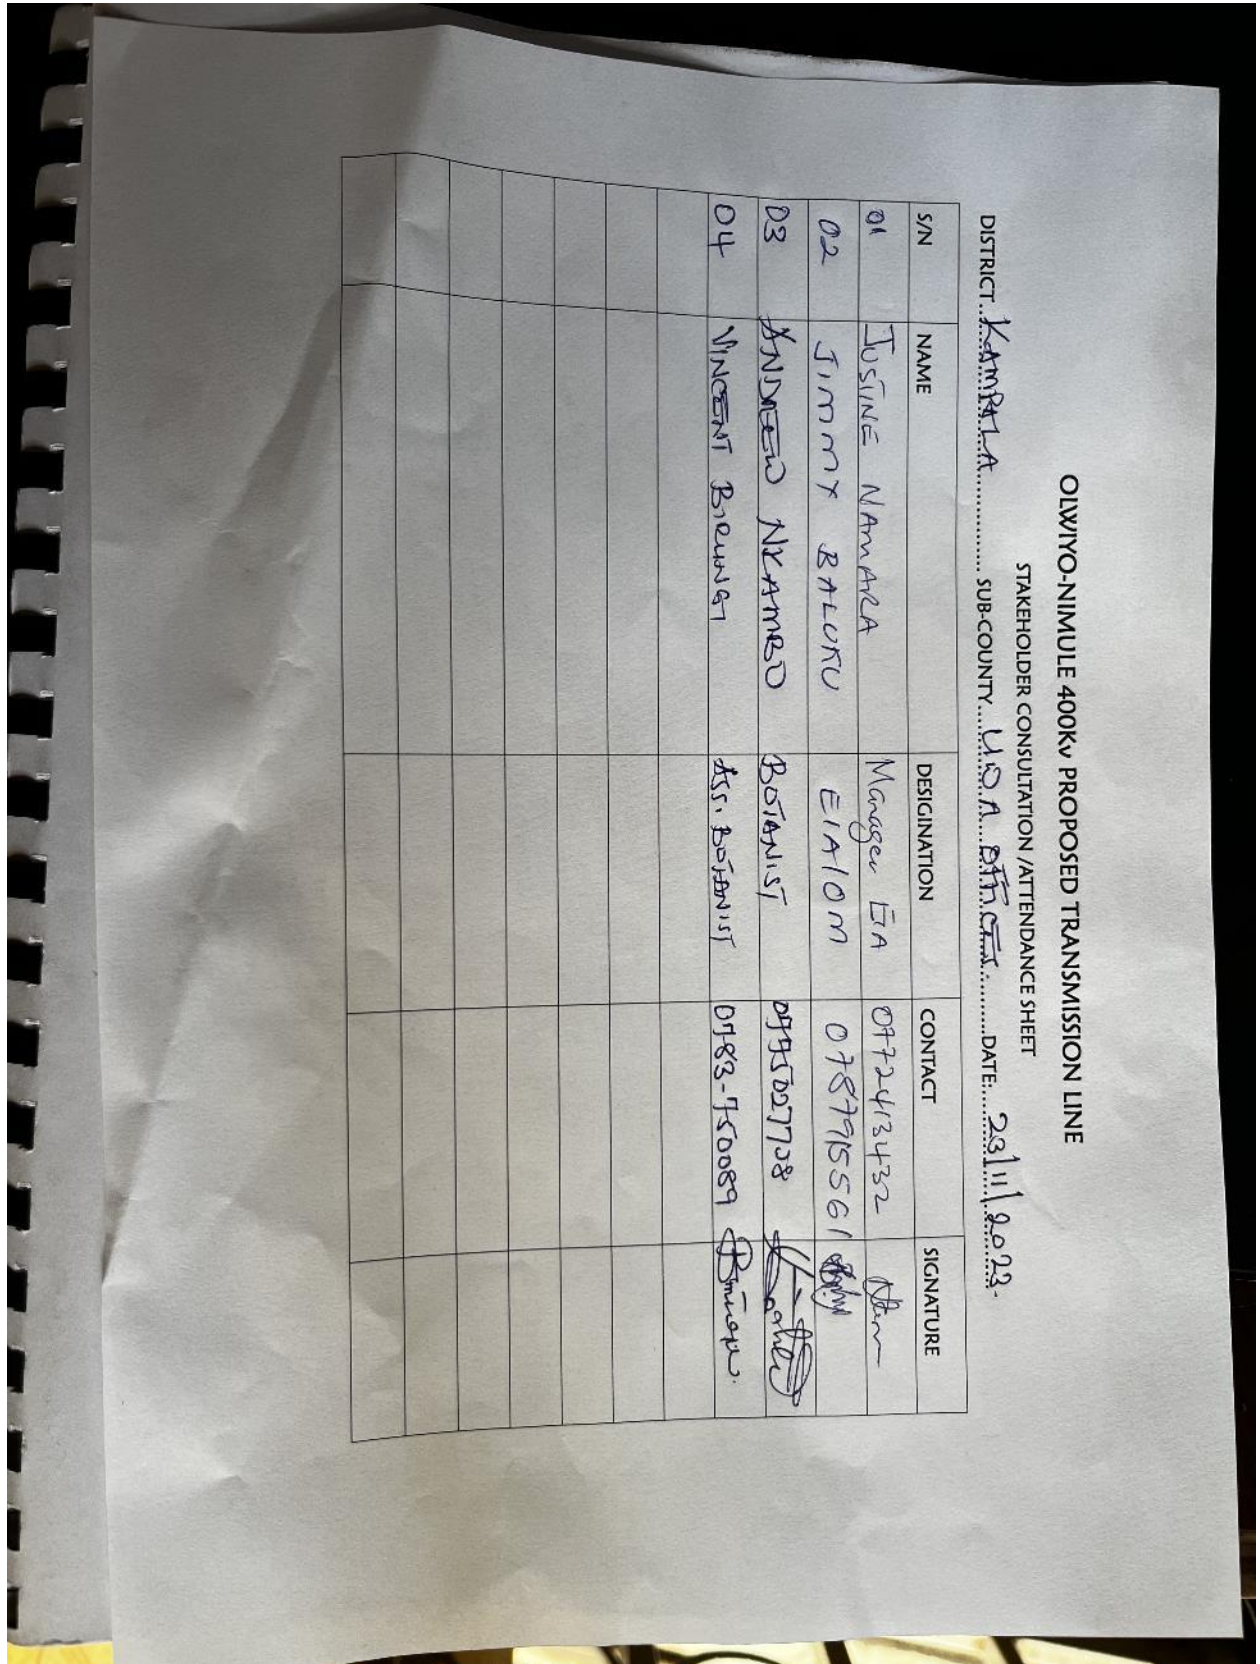 OLWIYO-NIMULE 400Kv PROPOSED TRANSMISSION LINE
STAKEHOLDER CONSULTATION /ATTENDANCE SHEET
DISTRICT..KAMPALA............. SUB-COUNTY....................DATE:....23/11/2023.
S/N NAME DESIGINATION CONTACT SIGNATURE
01 JUSTINE NAMARA Manager EIA 0772413432
02 JIMMY BALUKU EIAIOM 0787915561
03 ANDREW NYAMBO BOTANIST
04 VINCENT BIRUNGI Ass. BOTANIST 0783-750089